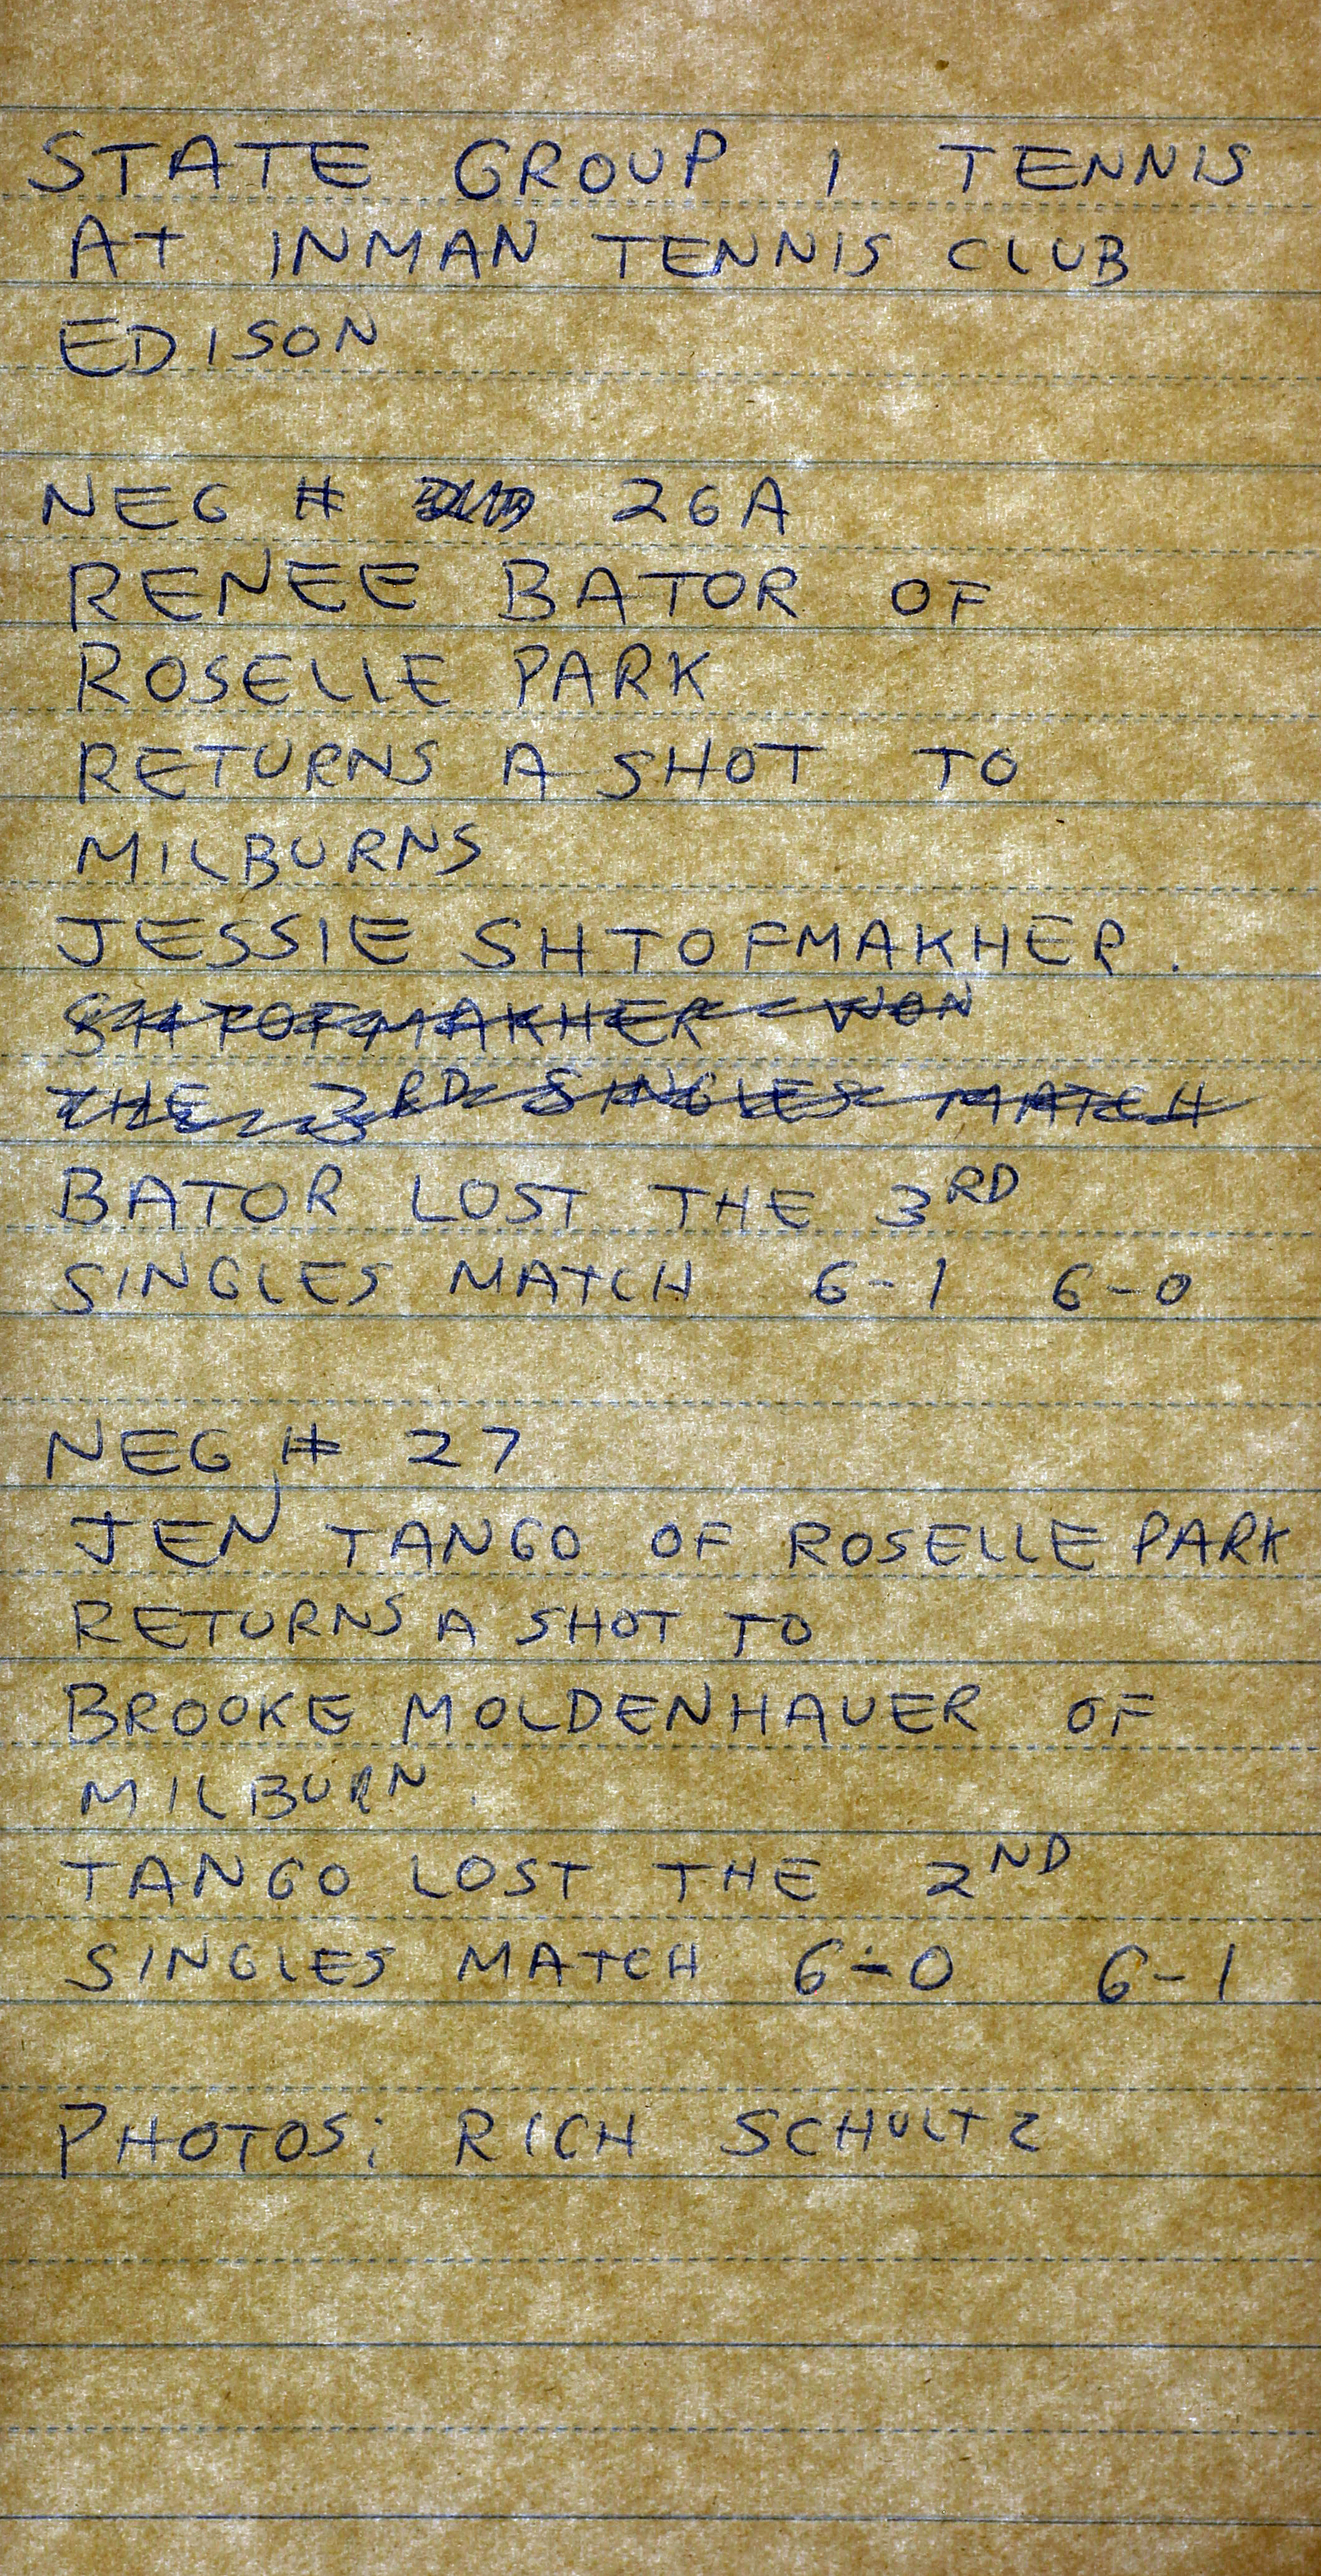 STATE GROUP 1 TENNIS
AT INMAN TENNIS CLUB
EDISON
NEG # 26A
RENEE BATOR OF
ROSELLE PARK
RETURNS A SHOT TO
MILBURNS
JESSIE SHTOFMAKHER.
SHTOFMAKHER WON
THE 3RD SINGLES MATCH
BATOR LOST THE 3RD
SINGLES MATCH 6-1 6-0
NEG # 27
JEN TANGO OF ROSELLE PARK
RETURNS A SHOT TO
BROOKE MOLDENHAUER OF
MILBURN.
TANGO LOST THE 2ND
SINGLES MATCH 6-0 6-1
PHOTOS: RICH SCHULTZ